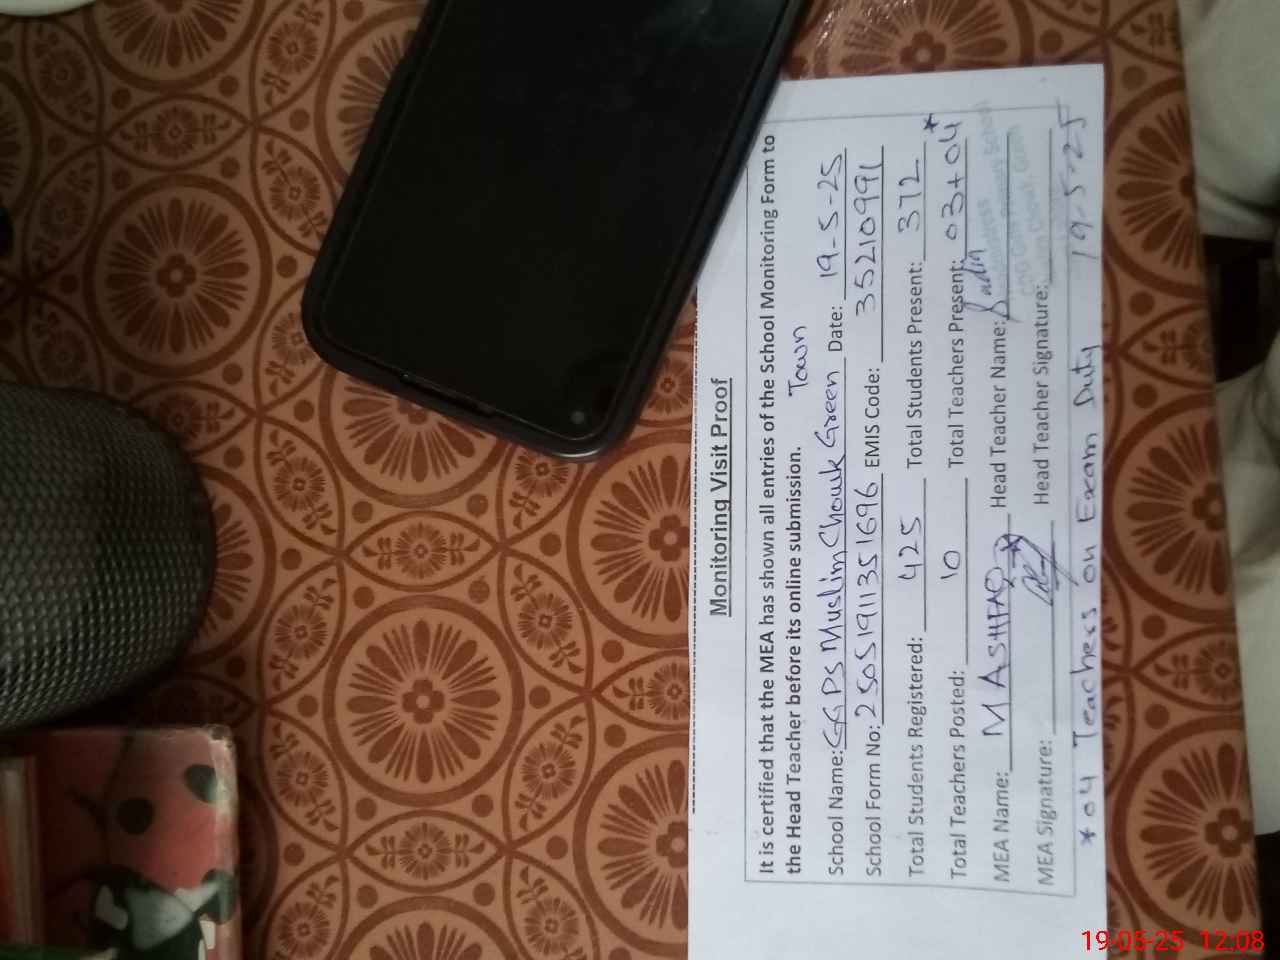 Monitoring Visit Proof
It is certified that the MEA has shown all entries of the School Monitoring Form to
the Head Teacher before its online submission.
Town
School Name: GGPS Muslim Chowk Green Date: 19-5-25
School Form No: 25051911351696 EMIS Code: 35210991
Total Students Registered: 425 Total Students Present: 372
Total Teachers Posted: 10 Total Teachers Present: 03+04 *
MEA Name: M ASHFAQ Head Teacher Name: Sadia
MEA Signature: Head Teacher Signature:
* 04 Teachers on Exam Duty 19-5-25
19-05-25 12:08